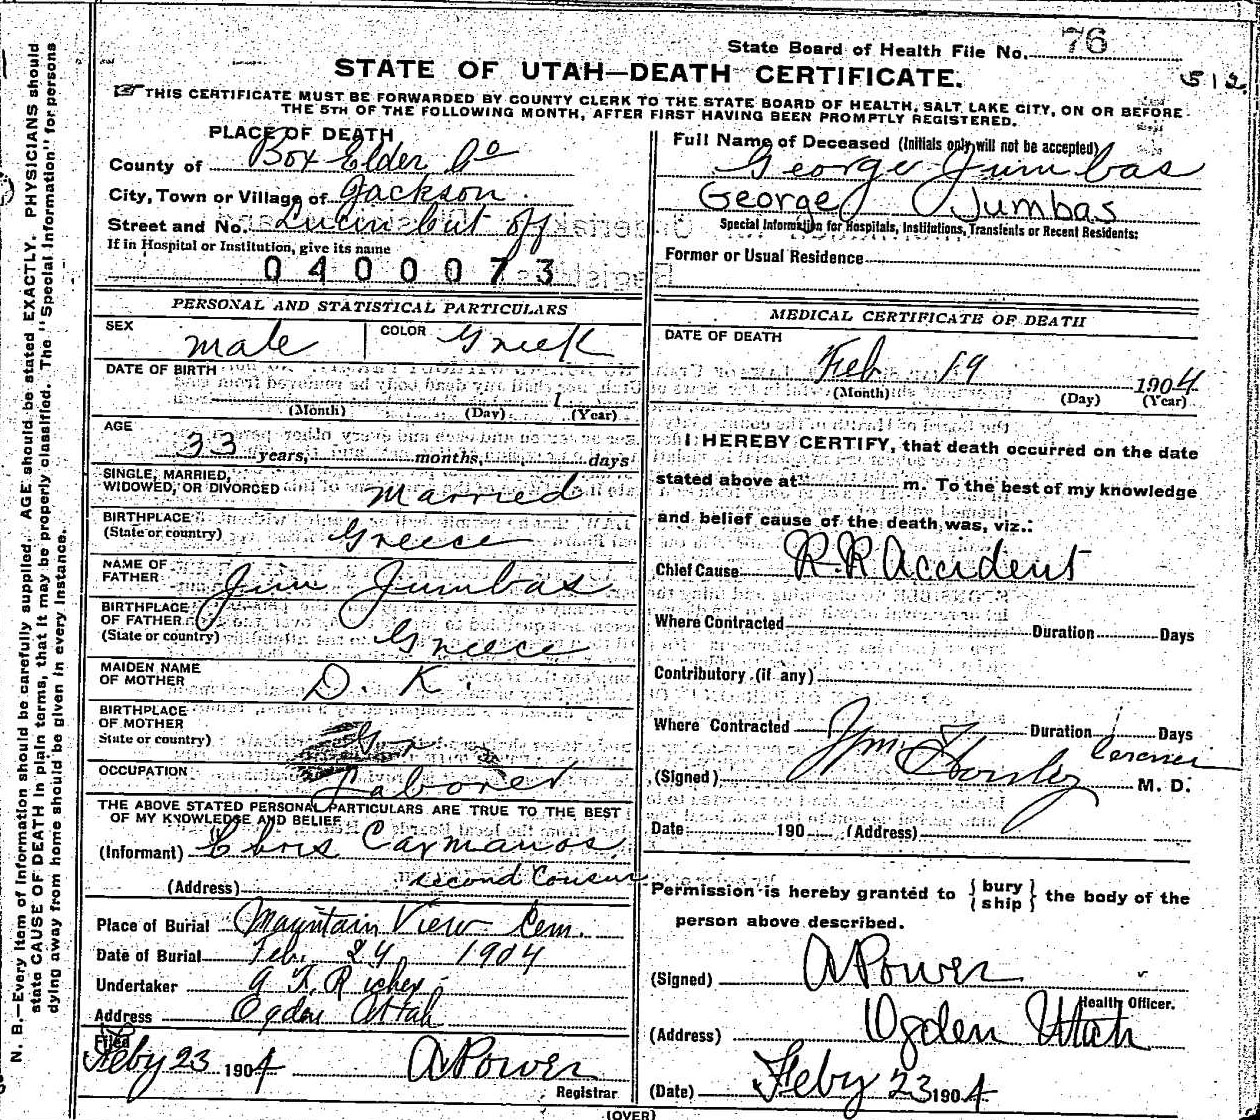 State Board of Health File No. 76
STATE OF UTAH—DEATH CERTIFICATE.
512.
THIS CERTIFICATE MUST BE FORWARDED BY COUNTY CLERK TO THE STATE BOARD OF HEALTH, SALT LAKE CITY, ON OR BEFORE
THE 5TH OF THE FOLLOWING MONTH, AFTER FIRST HAVING BEEN PROMPTLY REGISTERED.
PLACE OF DEATH
County of Box Elder Co
City, Town or Village of Jackson.
Street and No. Lucin cut off
If in Hospital or Institution, give its name
0400073
Full Name of Deceased (Initials only will not be accepted)
George Jumbas
George Jumbas
Special Information for Hospitals, Institutions, Transients or Recent Residents:
Former or Usual Residence
PERSONAL AND STATISTICAL PARTICULARS
SEX male COLOR Greek
DATE OF BIRTH
1
(Month) (Day) (Year)
AGE
33 years, months, days
SINGLE, MARRIED,
WIDOWED, OR DIVORCED Married
BIRTHPLACE
(State or country) Greece
NAME OF
FATHER Jim Jumbas
BIRTHPLACE
OF FATHER
(State or country) Greece
MAIDEN NAME
OF MOTHER D. K.
BIRTHPLACE
OF MOTHER
State or country)
OCCUPATION Laborer
THE ABOVE STATED PERSONAL PARTICULARS ARE TRUE TO THE BEST
OF MY KNOWLEDGE AND BELIEF
(Informant) Chris Carmanos
(Address) second Cousin
Place of Burial Mountain View Cem.
Date of Burial Feb. 24 1904
Undertaker
Address Ogden Utah
Filed
Feby 23 1904 A Power
Registrar
MEDICAL CERTIFICATE OF DEATH
DATE OF DEATH
Feb 19 1904
(Month) (Day) (Year)
I HEREBY CERTIFY, that death occurred on the date
stated above at m. To the best of my knowledge
and belief cause of the death was, viz.:
Chief Cause R.R Accident
Where Contracted Duration Days
Contributory (if any)
Where Contracted Duration Days
(Signed) Wm M. D.
Date 190 (Address)
Permission is hereby granted to {bury ship} the body of the
person above described.
(Signed) A Power
Health Officer.
(Address) Ogden Utah
(Date) Feby 23 1904
(OVER)
N. B.—Every item of information should be carefully supplied. AGE should be stated EXACTLY. PHYSICIANS should
state CAUSE OF DEATH in plain terms, that it may be properly classified. The "Special Information" for persons
dying away from home should be given in every instance.